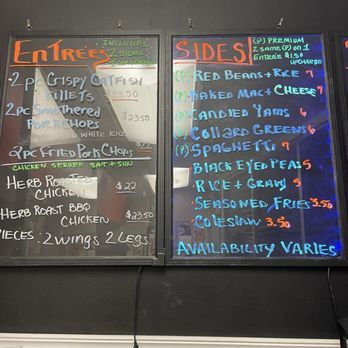 ENTRÉES INCLUDES
2 SIDES
2 pc Crispy Catfish
Fillets $23.50
2pc Smothered
PorkChops $23.50
ON WHITE RICE
2pc Fried PorkChops
CHICKEN SERVED SAT + SUN
Herb Roasted
Chicken $22
Herb Roast BBQ
Chicken $23.50
PIECES: 2 Wings 2 Legs
SIDES
(P) PREMIUM
2 SAME (P) ON 1
ENTRÉE $1.50
UPCHARGE
(P) Red Beans + Rice 7
(P) Baked Mac + Cheese 7
(P) Candied Yams 6
(P) Collard Greens 6
(P) Spaghetti 7
Black Eyed Peas 5
Rice + Gravy 5
Seasoned Fries 3.50
Coleslaw 3.50
Availability Varies